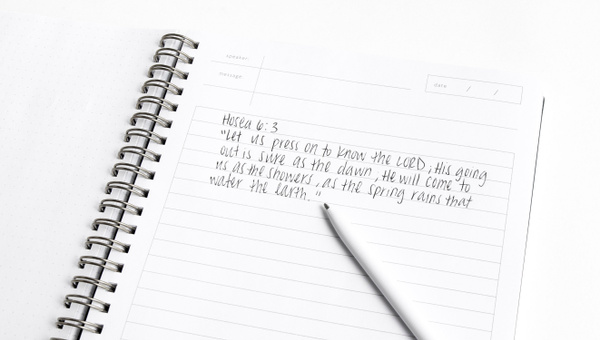 speaker
message
date / /
Hosea 6:3
"Let us press on to know the LORD, His going
out is sure as the dawn, He will come to
us as the showers, as the spring rains that
water the earth."